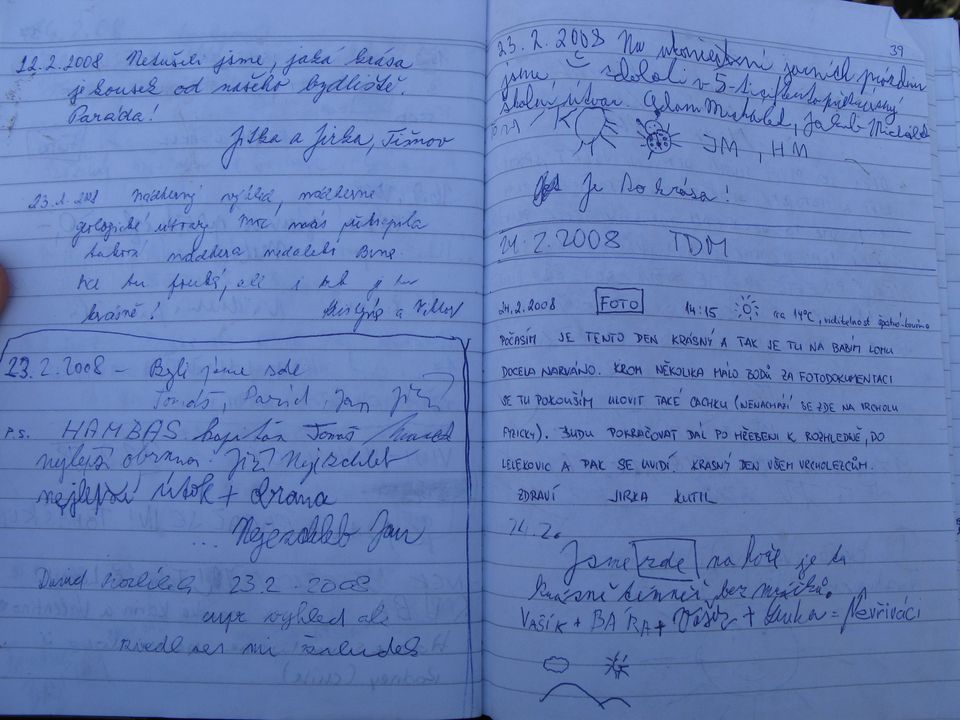 12.2.2008 Netušili jsme, jaká krása
je kousek od našeho bydliště.
Paráda!
Jitka a Jirka, Tišnov
23.2.2008 Nádherný výhled, nádherné
geologické útvary
nádhera nedaleko Brna.
fouká, ale i tak je tu
krásně!
23.2.2008 - Byli jsme zde
Tomáš, David, Jan, Jiří
P.S. HAMBAS kapitán Tomáš
nejlepší obrana: Jiří Nejezchleb
nejlepší útok + brana
... Nejezchleb Jan
David 23.2.2008
supr vyhled ale
zvedl se mi žaludek
39
23.2.2008 Na ukončení jarních prázdnin
jsme zdolali v 5-ti
školní útvar. Adam Michálek, Jakub Michálek
JM, HM
Je to krása!
24.2.2008 TDM
24.2.2008 FOTO 14:15 14°C, viditelnost
POČASÍM JE TENTO DEN KRÁSNÝ A TAK JE TU NA BABÍM LOMU
DOCELA NARVÁNO. KROM NĚKOLIKA MÁLO BODŮ ZA FOTODOKUMENTACI
SE TU POKOUŠÍM ULOVIT TAKÉ CACHKU (NENACHÁZÍ SE ZDE NA VRCHOLU
FYZICKY). BUDU POKRAČOVAT DÁL PO HŘEBENI K ROZHLEDNĚ, DO
LELEKOVIC A PAK SE UVIDÍ. KRÁSNÝ DEN VŠEM VRCHOLEZCŮM.
ZDRAVÍ JIRKA KUTIL
24.2.
Jsme zde na hoře je tu
krásně bez mráčků.
VAŠÍK + BÁRA + + = Nevřiváci